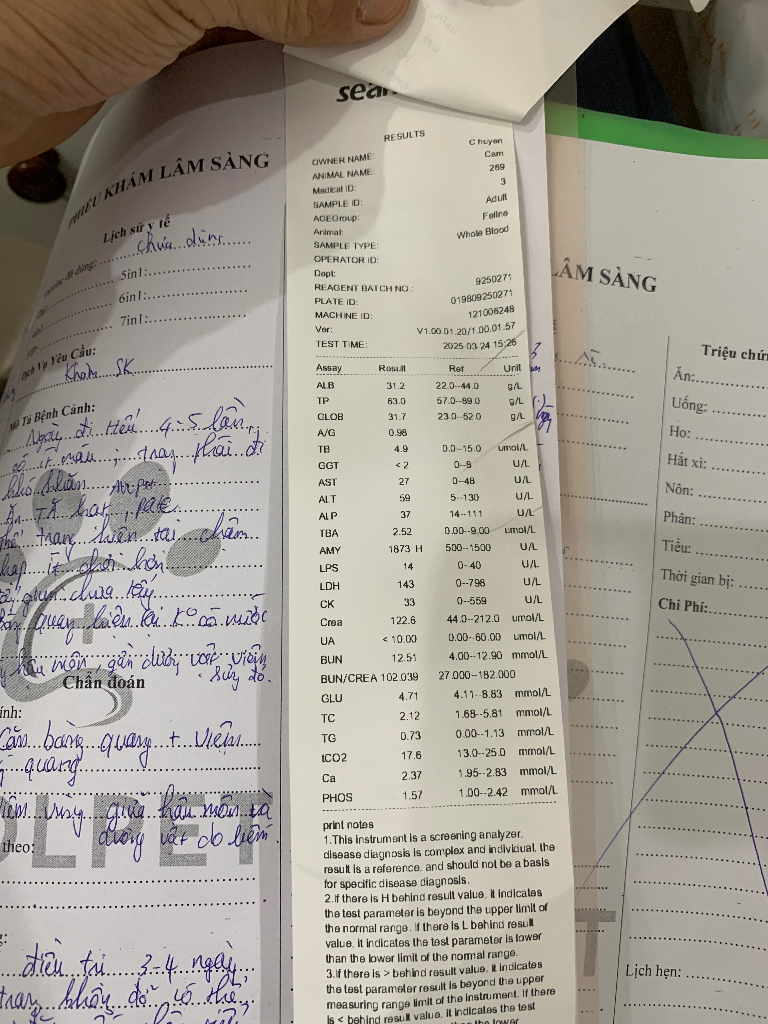 PHIẾU KHÁM LÂM S�àNG
Lịch sử y tế
chưa dùng
5in1:
6in1:
7in1:
Dịch Vụ Yêu Cầu:
Khám SK
Mô Tả Bệnh Cảnh:
Ngày đi tiểu 4-5 lần,
có ít máu
khó khăn
Ăn TĂ hạt, pate
trạng hiện tại chậm
ít chơi hơn
quan chưa thấy
quang hiện tại ko có nước
hậu môn, gần dương vật viêm
sưng đỏ.
Chẩn đoán
Cặn bàng quang + viêm
quang
vùng giữa hậu môn và
dương vật do liếm
theo:
điều trị 3-4 ngày
không đỡ có thể
RESULTS
OWNER NAME: Chuyen
ANIMAL NAME: Cam
Medical ID: 269
SAMPLE ID: 3
AGEGroup: Adult
Animal: Feline
SAMPLE TYPE: Whole Blood
OPERATOR ID:
Dept:
REAGENT BATCH NO.: 9250271
PLATE ID: 019809250271
MACHINE ID: 121006248
Ver: V1.00.01.20/1.00.01.57
TEST TIME: 2025-03-24 15:26
Assay Result Ref Unit
ALB 31.2 22.0--44.0 g/L
TP 63.0 57.0--89.0 g/L
GLOB 31.7 23.0--52.0 g/L
A/G 0.98
TB 4.9 0.0--15.0 umol/L
GGT <2 0--8 U/L
AST 27 0--48 U/L
ALT 59 5--130 U/L
ALP 37 14--111 U/L
TBA 2.52 0.00--9.00 umol/L
AMY 1873 H 500--1500 U/L
LPS 14 0--40 U/L
LDH 143 0--798 U/L
CK 33 0--559 U/L
Crea 122.6 44.0--212.0 umol/L
UA <10.00 0.00--60.00 umol/L
BUN 12.51 4.00--12.90 mmol/L
BUN/CREA 102.039 27.000--182.000
GLU 4.71 4.11--8.83 mmol/L
TC 2.12 1.68--5.81 mmol/L
TG 0.73 0.00--1.13 mmol/L
tCO2 17.6 13.0--25.0 mmol/L
Ca 2.37 1.95--2.83 mmol/L
PHOS 1.57 1.00--2.42 mmol/L
print notes
1.This instrument is a screening analyzer,
disease diagnosis is complex and individual, the
result is a reference, and should not be a basis
for specific disease diagnosis.
2.If there is H behind result value, it indicates
the test parameter is beyond the upper limit of
the normal range. If there is L behind result
value, it indicates the test parameter is lower
than the lower limit of the normal range.
3.If there is > behind result value, it indicates
the test parameter result is beyond the upper
measuring range limit of the instrument. If there
is < behind result value, it indicates the test
LÂM SÀNG
Triệu chứ
Ăn:
Uống:
Ho:
Hắt xì:
Nôn:
Phân:
Tiểu:
Thời gian bị:
Chi Phí:
Lịch hẹn: